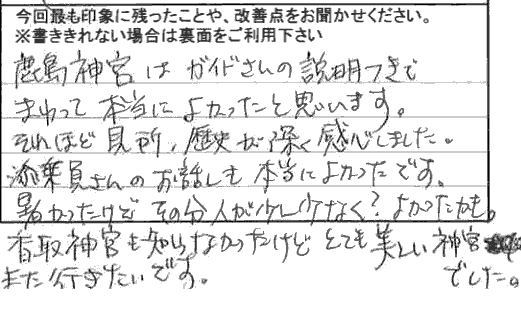 今回最も印象に残ったことや、改善点をお聞かせください。
※書ききれない場合は裏面をご利用下さい
鹿島神宮はガイドさんの説明つきで
まわって本当によかったと思います。
それほど見所、歴史が深く感心しました。
添乗員さんのお話しも本当によかったです。
暑かったけどその分人が少し少なく?よかったかも。
香取神宮も知らなかったけどとても美しい神宮
でした。
また行きたいです。